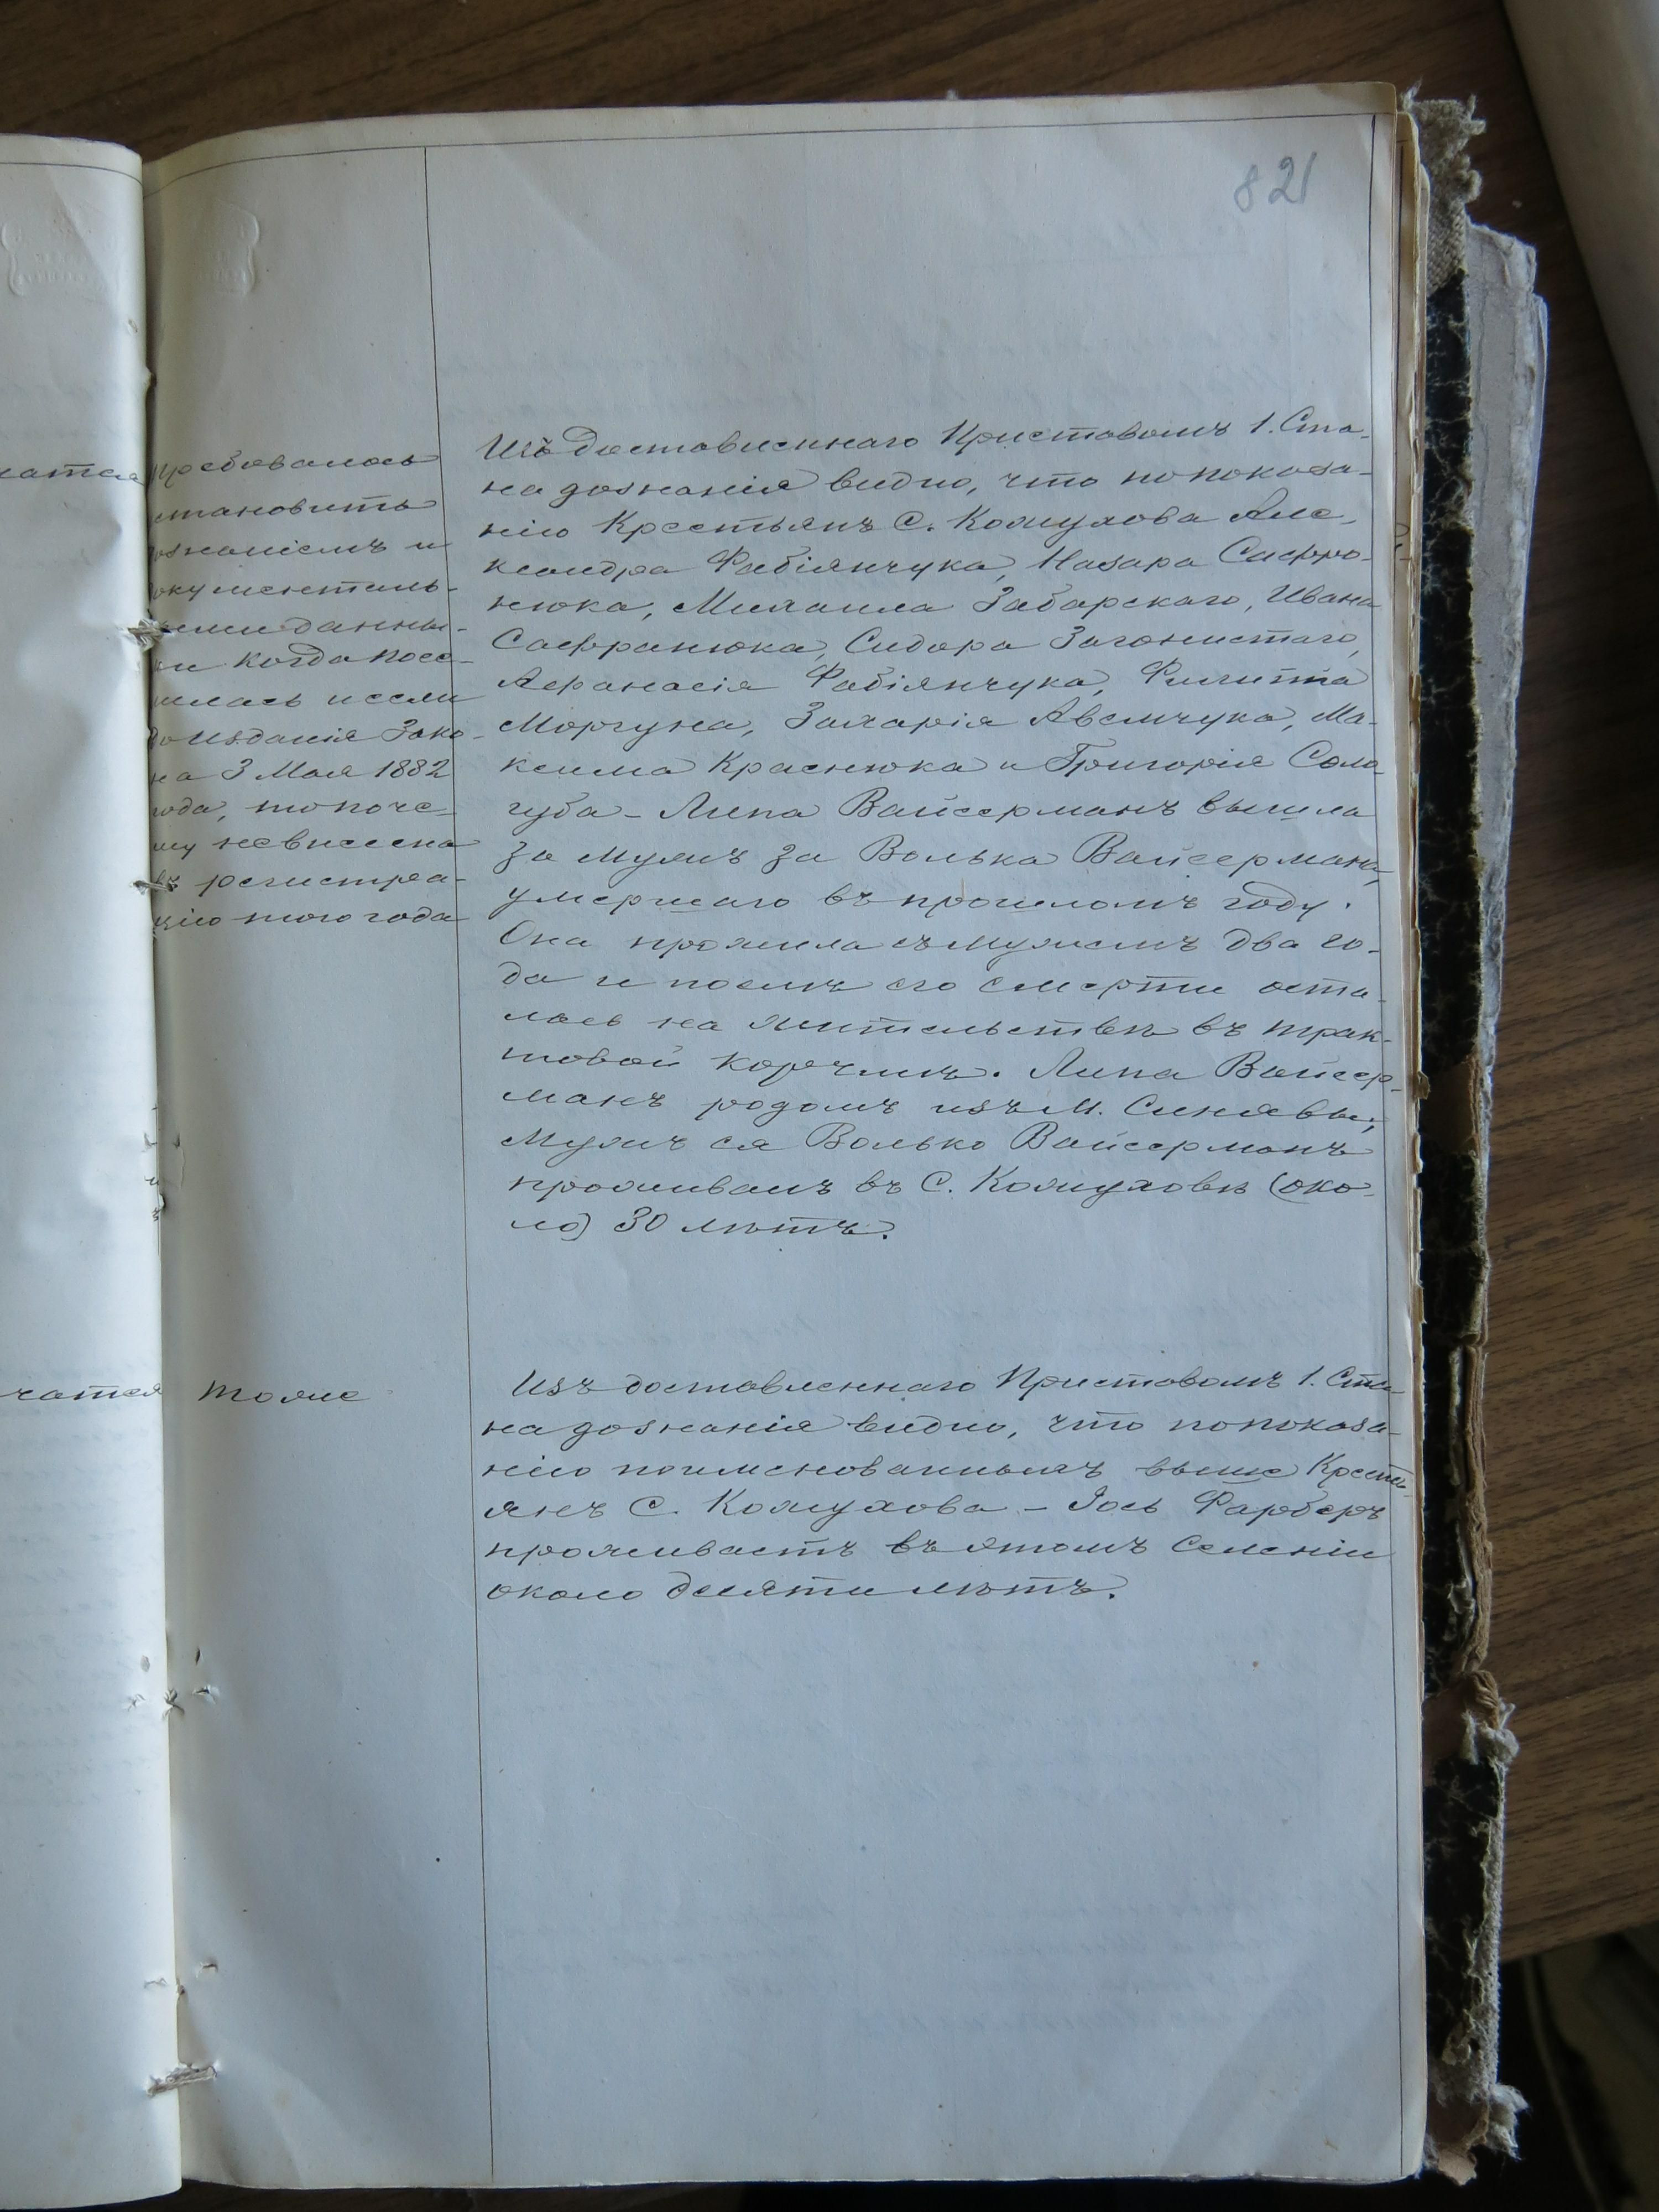 821
чатся
требовалось
становить
ознаніемъ и
окументаль-
ными данны-
ми когда посе-
лилась и если
до изданія Зако-
на 3 Мая 1882
года, то поче-
му не внесена
въ регистра-
цію того года
Изъ доставленнаго Приставомъ 1. Ста-
на дознанія видно, что по показа-
нію Крестьянъ С. Кожухова Але-
ксандра Фабіянчука, Назара Сафро-
нюка, Михаила Забарскаго, Ивана
Сафранюка, Сидора Загонистаго,
Афанасія Фабіянчука, Филиппа
Моргуна, Захарія Авсмчука, Ма-
ксима Краснюка и Григорія Соло-
губа - Липа Вайсерманъ вышла
за мужъ за Волька Вайсермана,
умершаго въ прошломъ году.
Она прожила съ мужемъ два го-
да и послѣ его смерти оста-
лась на жительствѣ въ трак-
товой корчмѣ. Липа Вайсер-
манъ родомъ изъ М. Синявы,
Мужъ ея Волько Вайсерманъ
проживалъ въ С. Кожуховѣ (око-
ло) 30 лѣтъ.
чатся
тоже
Изъ доставленнаго Приставомъ 1. Ста-
на дознанія видно, что по показа-
нію поименованныхъ выше Кресть-
янъ С. Кожухова - Іось Фарберъ
проживаетъ въ этомъ Селеніи
около десяти лѣтъ.